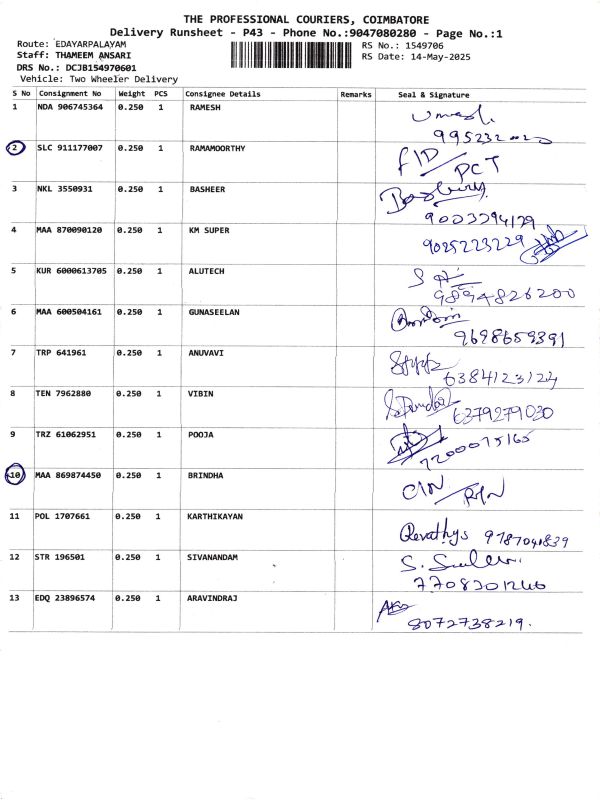 THE PROFESSIONAL COURIERS, COIMBATORE
Delivery Runsheet - P43 - Phone No.:9047080280 - Page No.:1
Route: EDAYARPALAYAM
Staff: THAMEEM ANSARI
DRS No.: DCJB154970601
Vehicle: Two Wheeler Delivery
RS No.: 1549706
RS Date: 14-May-2025
S No Consignment No Weight PCS Consignee Details Remarks Seal & Signature
1 NDA 906745364 0.250 1 RAMESH
2 SLC 911177007 0.250 1 RAMAMOORTHY
FID/PCT
3 NKL 3550931 0.250 1 BASHEER
4 MAA 870090120 0.250 1 KM SUPER
9025223229
5 KUR 6000613705 0.250 1 ALUTECH
9894826200
6 MAA 600504161 0.250 1 GUNASEELAN
9698659391
7 TRP 641961 0.250 1 ANUVAVI
6384123124
8 TEN 7962880 0.250 1 VIBIN
6379279030
9 TRZ 61062951 0.250 1 POOJA
7200075165
10 MAA 869874450 0.250 1 BRINDHA
11 POL 1707661 0.250 1 KARTHIKAYAN
Revathys 9787041839
12 STR 196501 0.250 1 SIVANANDAM
7708301266
13 EDQ 23896574 0.250 1 ARAVINDRAJ
8072738219.